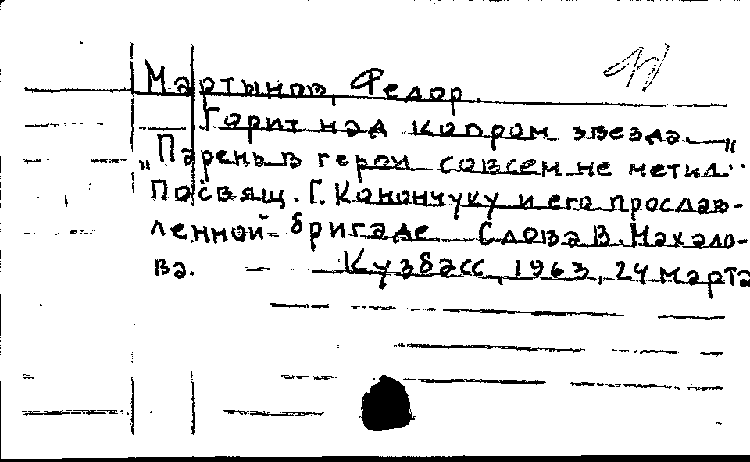 Мартынов, Федор.
Горит над копром звезда. — „
„Парень в герои совсем не метил..“
Посвящ. Г. Конончуку и его прослав-
ленной бригаде. Слова В. Махало-
ва. — Кузбасс, 1963, 24 марта